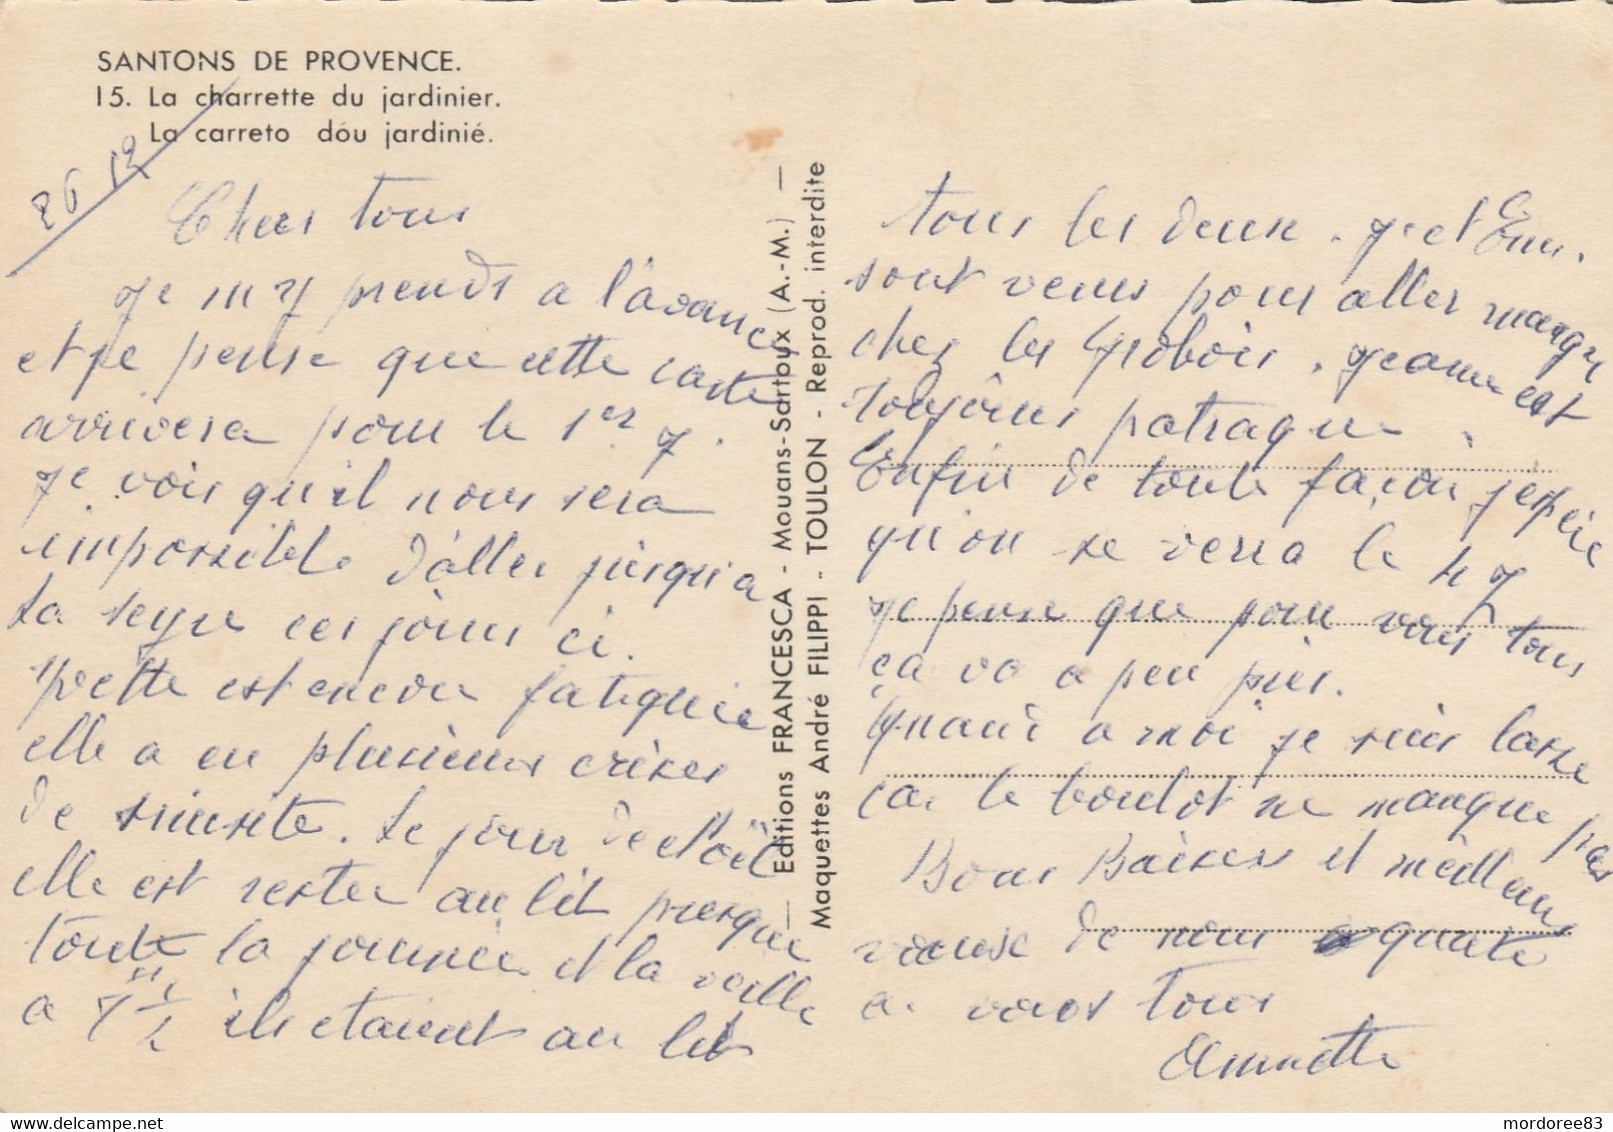 SANTONS DE PROVENCE.
15. La charrette du jardinier.
La carreto dóu jardinié.
26 12
Chers tous
Je m'y prends a l'avance
et je pense que cette carte
arrivera pour le 1er J.
Je vois qu'il nous sera
impossible d'aller jusqu'a
La Seyne ces jours ci.
Yvette est encore fatiguée
elle a eu plusieurs crises
de sinusite. Le jour de Noël
elle est restee au lit presque
toute la journée et la veille
a 7 h 1/2 ils etaient au lit
Editions FRANCESCA - Mouans-Sartoux (A.-M.) —
Maquettes André FILIPPI - TOULON - Reprod. interdite
tous les deux. J. et Em.
sont venus pour aller manger
chez les Grobois. Jeanne est
toujours patraque.
Enfin de toute façon j'espère
qu'on se verra le 4 J
Je pense que pour vous tous
ça va a peu près.
Quant a moi je suis lasse
car le boulot ne manque pas
Bons Baisers et meilleurs
voeux de nous quatre
a vous tous
Annette
mordoree83